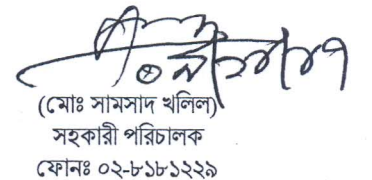 (মোঃ সামসাদ খলিল)
সহকারী পরিচালক
ফোনঃ ০২-৮১৮১২২৯